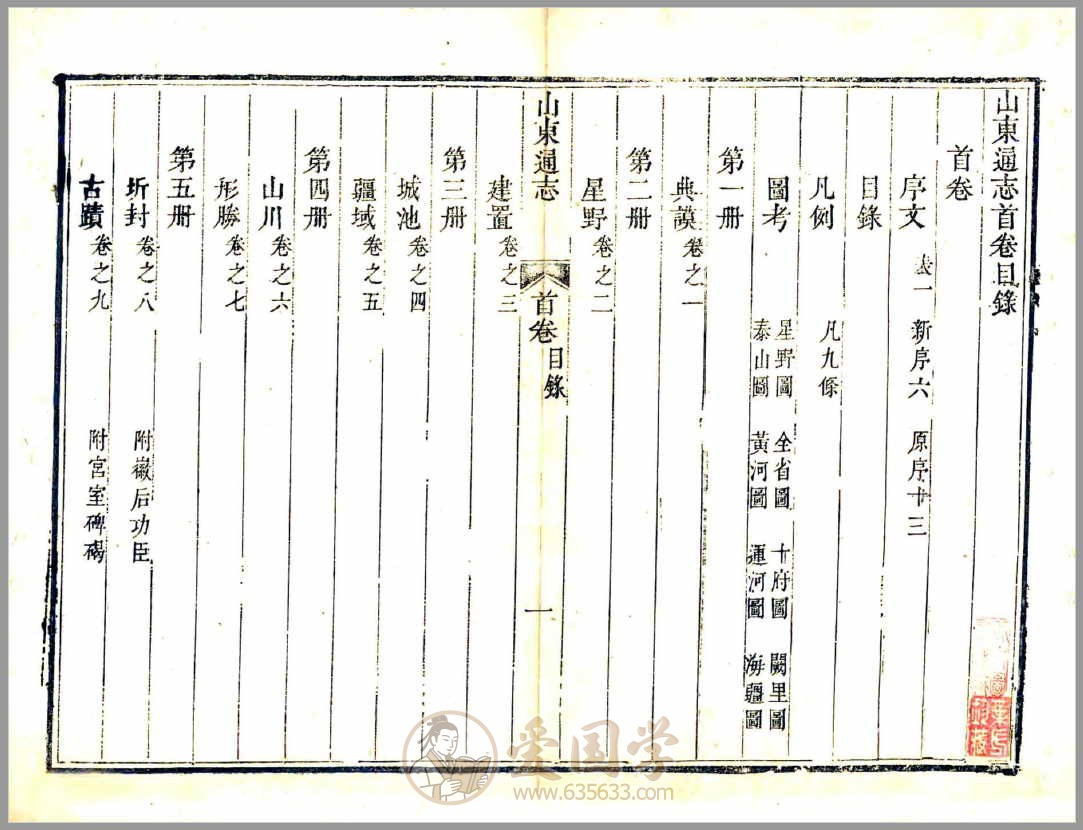 山東通志首卷目錄
首卷
序文 表一 新序六 原序十三
目錄
凡例 凡九條
圖考 星野圖 全省圖 十府圖 闕里圖
泰山圖 黃河圖 運河圖 海疆圖
第一册
典謨 卷之一
第二册
星野 卷之二
山東通志 首卷 目錄 一
建置 卷之三
第三册
城池 卷之四
疆域 卷之五
第四册
山川 卷之六
形勝 卷之七
第五册
圻封 卷之八 附嶽后功臣
古蹟 卷之九 附宮室碑碣
爱国学
www.635633.com